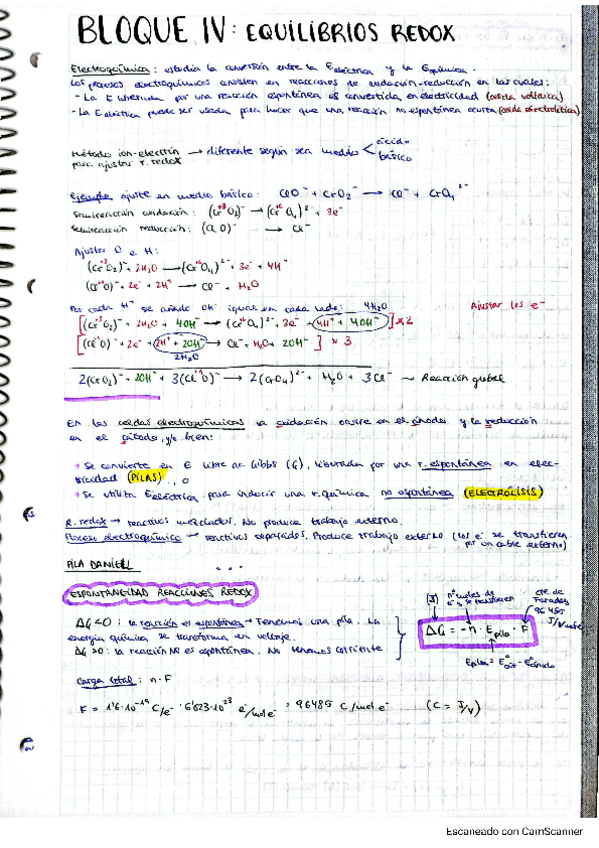 BLOQUE IV: EQUILIBRIOS REDOX
Electroquímica: estudia la conversión entre la Eeléctrica y la Equímica.
Los procesos electroquímicos consisten en reacciones de oxidación-reducción en las cuales:
- La E liberada por una reacción espontánea es convertida en electricidad (celda voltaica)
- La E eléctrica puede ser usada para hacer que una reacción no espontánea ocurra (celda electrolítica)
Método ion-electrón → diferente según sea medio < ácido
para ajustar r. redox básico
Ejemplo ajuste en medio básico: ClO⁻ + CrO₂⁻ → Cl⁻ + CrO₄²⁻
Semirreacción oxidación: (Cr⁺³O₂)⁻ → (Cr⁺⁶O₄)²⁻ + 3e⁻
Semirreacción reducción: (ClO)⁻ → Cl⁻
Ajustar O e H:
(Cr⁺³O₂)⁻ + 2H₂O → (Cr⁺⁶O₄)²⁻ + 3e⁻ + 4H⁺
(Cl⁺¹O)⁻ + 2e⁻ + 2H⁺ → Cl⁻ + H₂O
Por cada H⁺ se añade OH⁻ igual en cada lado: 4H₂O Ajustar los e⁻
[(Cr⁺³O₂)⁻ + 2H₂O + 4OH⁻ → (Cr⁺⁶O₄)²⁻ + 3e⁻ + 4H⁺ + 4OH⁻] x 2
[(Cl⁺¹O)⁻ + 2e⁻ + 2H⁺ + 2OH⁻ → Cl⁻ + H₂O + 2OH⁻] x 3
2H₂O
2(CrO₂)⁻ + 2OH⁻ + 3(ClO)⁻ → 2(CrO₄)²⁻ + H₂O + 3Cl⁻ ~ Reacción global
En las celdas electroquímicas la oxidación ocurre en el ánodo y la reducción
en el cátodo, y/o bien:
Se convierte en E libre de Gibbs (G), liberada por una r. espontánea en elec-
tricidad (PILAS), o
Se utiliza Eeléctrica para inducir una r. química no espontánea (ELECTRÓLISIS)
R. redox → reactivos mezclados. No produce trabajo externo.
Proceso electroquímico → reactivos separados. Produce trabajo externo (los e⁻ se transfieren
por un cable externo)
PILA DANIELL ...
ESPONTANEIDAD REACCIONES REDOX
(J) nº moles de e⁻s se transfieren cte de Faraday 96485 J/V·mol e⁻
ΔG<0: la reacción es espontánea → Tenemos una pila. La
energía química se transforma en voltaje.
ΔG>0: la reacción NO es espontánea. No tenemos corriente
ΔG = -n · Epila · F
Epila = E°cát - E°ánodo
Carga total: n·F
F = 1'6·10⁻¹⁹ C/e⁻ · 6'023·10²³ e⁻/mol e⁻ = 96485 C/mol e⁻ (C = J/V)
Escaneado con CamScanner